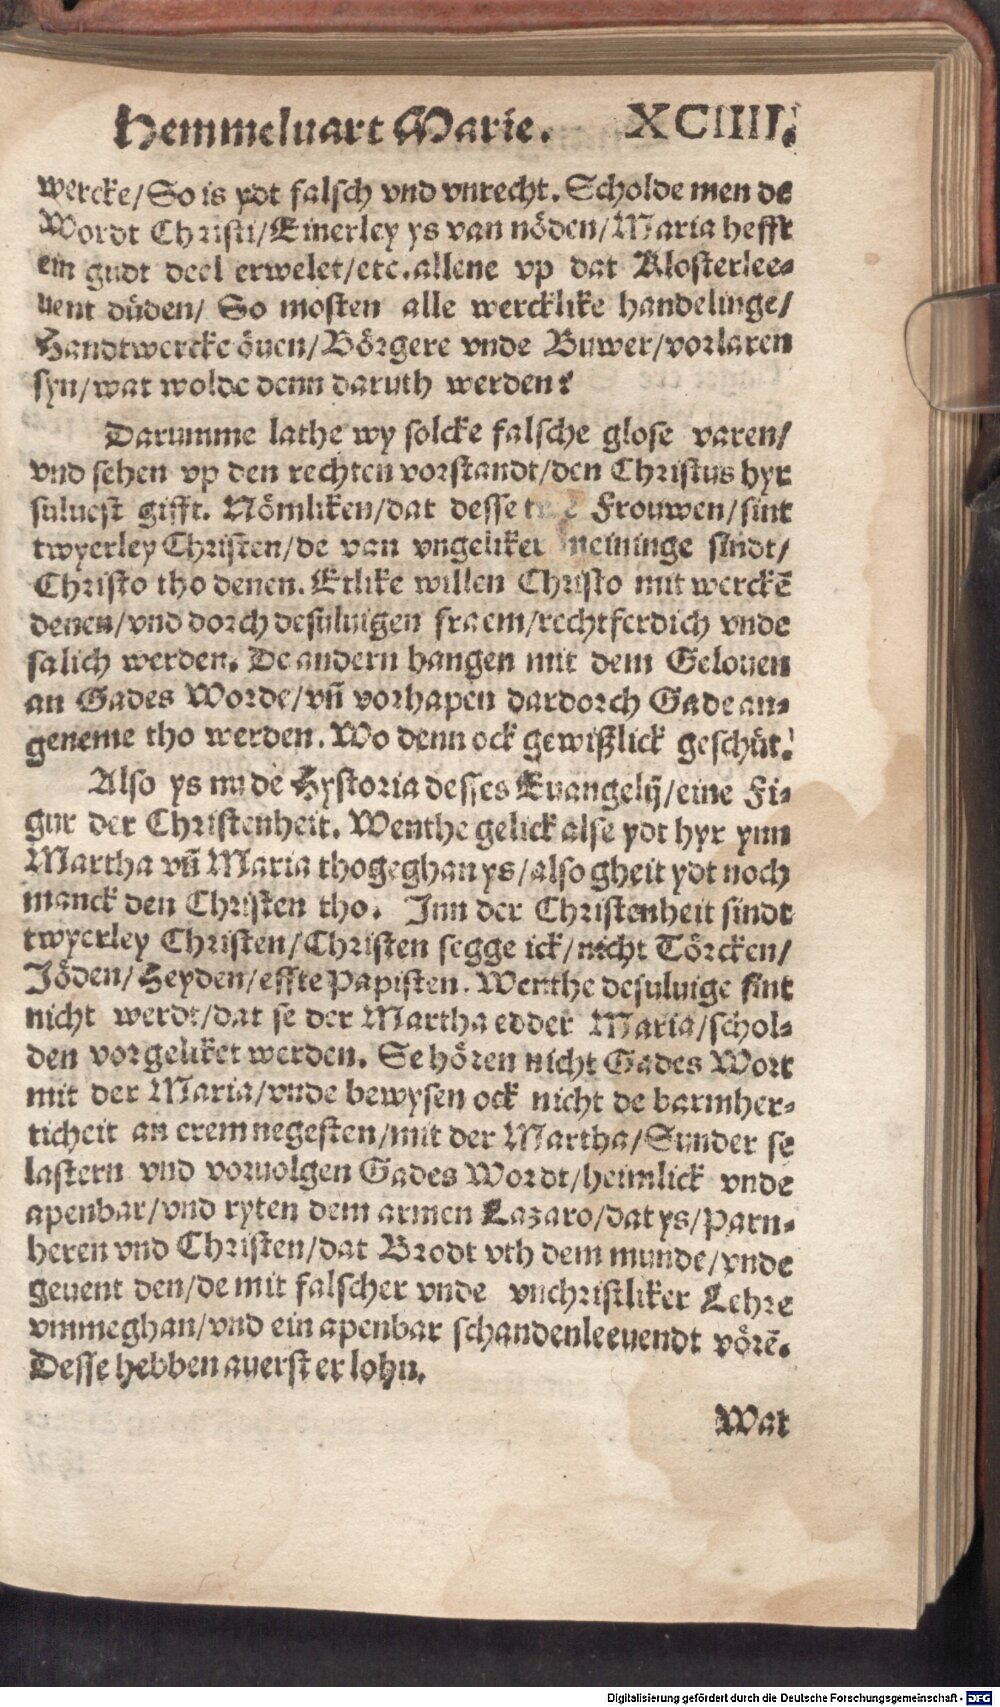 Hemmeluart Marie. XCIIII.
wercke/So is ydt falsch vnd vnrecht. Scholde men de
Wordt Christi/Einerley ys van nöden/Maria hefft
ein gudt deel erwelet/etc. allene vp dat Klosterlee-
uent düden/ So mosten alle wercklike handelinge/
Handtwercke öuen/Börgere vnde Buwer/vorlaren
syn/wat wolde denn daruth werden?
Darumme lathe wy solcke falsche glose varen/
vnd sehen vp den rechten vorstandt/den Christus hyr
suluest gifft. Nömliken/dat desse Frouwen/sint
twyerley Christen/de van vngeliker meininge sindt/
Christo tho denen. Etlike willen Christo mit werckē
denen/vnd dorch desuluigen fraem/rechtferdich vnde
salich werden. De andern hangen mit dem Gelouen
an Gades Worde/vn̄ vorhapen dardorch Gade an-
geneme tho werden. Wo denn ock gewißlick geschüt.
Also ys nu de Hystoria desses Euangelij/eine Fi-
gur der Christenheit. Wenthe gelick alse ydt hyr ynn
Martha vn̄ Maria thogeghan ys/also gheit ydt noch
manck den Christen tho. Inn der Christenheit sindt
twyerley Christen/Christen segge ick/nicht Törcken/
Jöden/Heyden/effte Papisten. Wenthe desuluige sint
nicht werdt/dat se der Martha edder Maria/schol-
den vorgeliket werden. Se hören nicht Gades Wort
mit der Maria/vnde bewysen ock nicht de barmher-
ticheit an erem negesten/mit der Martha/Sunder se
lastern vnd voruolgen Gades Wordt/heimlick vnde
apenbar/vnd ryten dem armen Lazaro/dat ys/Parn-
heren vnd Christen/dat Brodt vth dem munde/vnde
geuent den/de mit falscher vnde vnchristliker Lehre
vmmeghan/vnd ein apenbar schandenleeuendt vörē.
Desse hebben auerst er lohn.
Wat
Digitalisierung gefördert durch die Deutsche Forschungsgemeinschaft - DFG